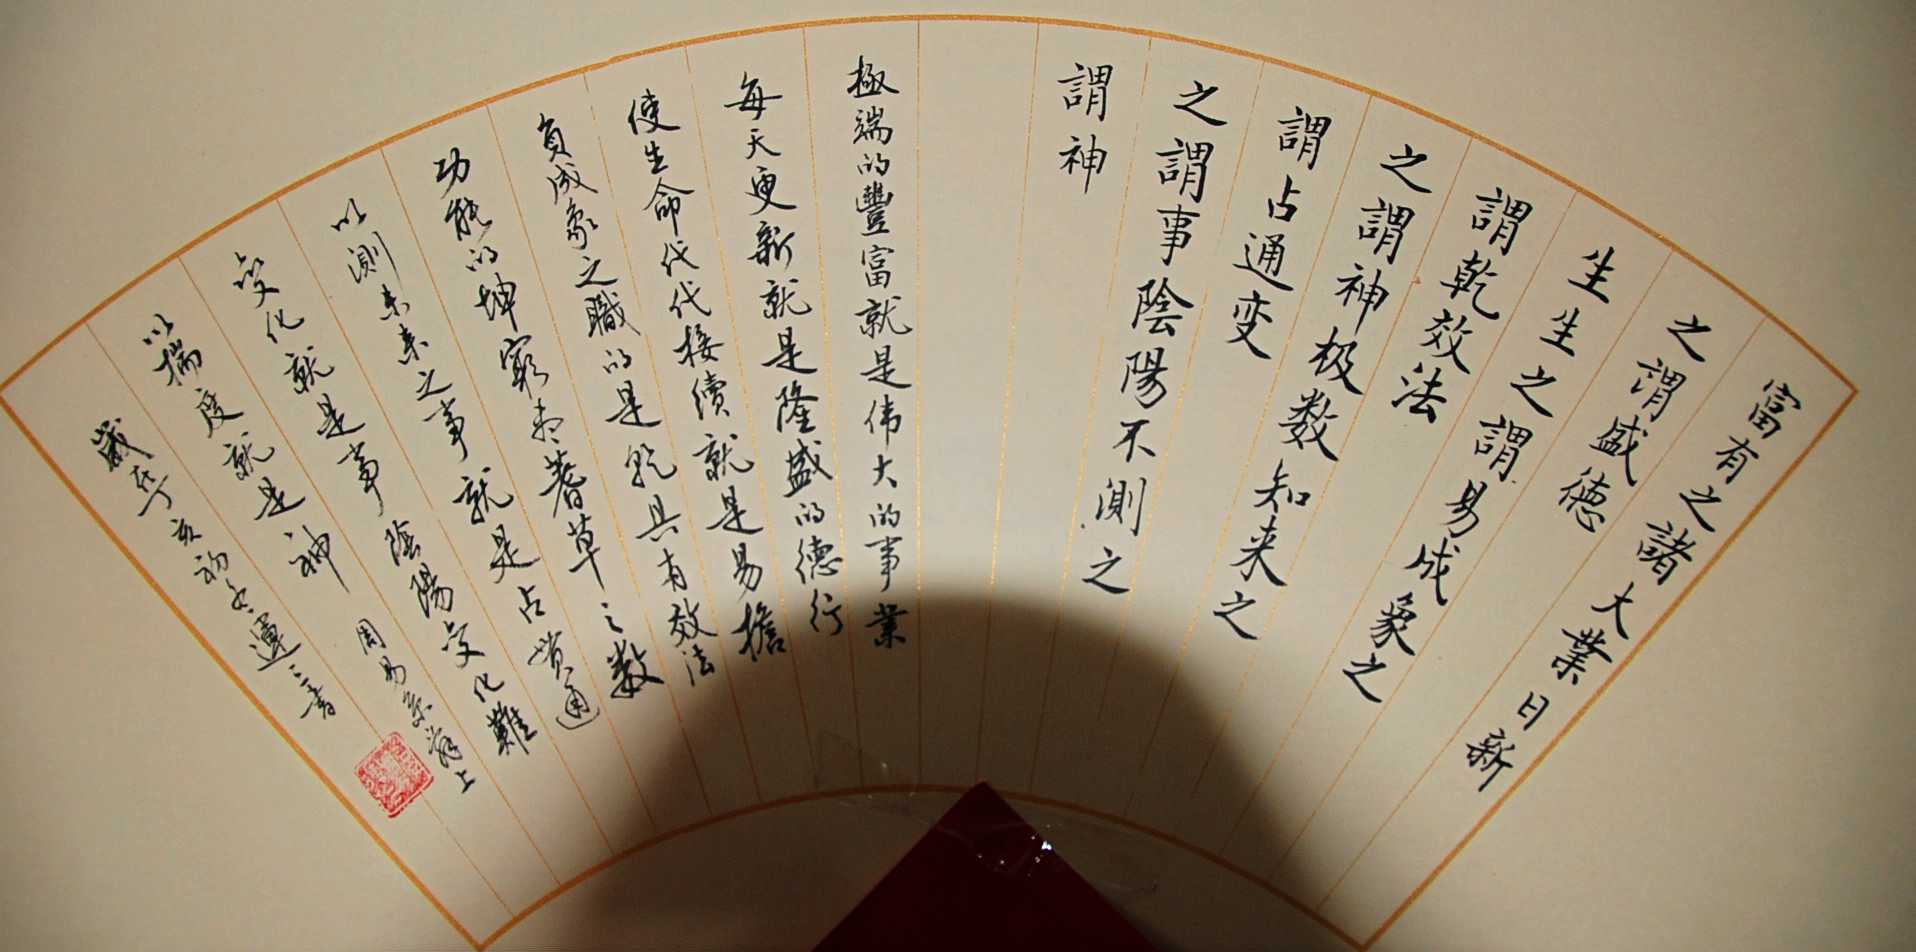 富有之諸大業日新
之谓盛德
生生之謂易成象之
謂乾效法
之謂神极数知来之
謂占通变
之謂事陰陽不測之
謂神
極端的豐富就是伟大的事業
每天更新就是隆盛的德行
使生命代代接續就是易擔
負成象之職的是乾具有效法
功能的坤窮尽蓍草之数
以測未来之事就是占贯通
变化就是事陰陽变化難
以揣度就是神
周易系辞上
歲在